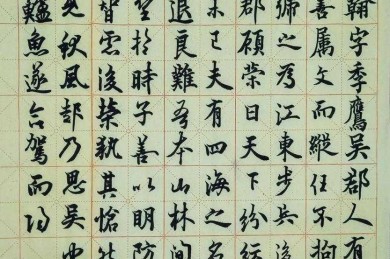 翰字季鷹吳郡人有
善属文而縱任不拘
號之為江東步兵後
郡顧榮曰天下紛紜
未已夫有四海之名
退良難吾本山林間
望於時子善以明防
智慮後榮執其愴然
見秋風起乃思吳中
鱸魚遂命駕而歸